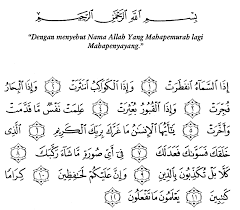 بِسْمِ اللَّهِ الرَّحْمَٰنِ الرَّحِيمِ
"Dengan menyebut Nama Allah Yang Mahapemurah lagi
Mahapenyayang."
إِذَا السَّمَاءُ انفَطَرَتْ ١ وَإِذَا الْكَوَاكِبُ انتَثَرَتْ ٢ وَإِذَا الْبِحَارُ
فُجِّرَتْ ٣ وَإِذَا الْقُبُورُ بُعْثِرَتْ ٤ عَلِمَتْ نَفْسٌ مَّا قَدَّمَتْ
وَأَخَّرَتْ ٥ يَا أَيُّهَا الْإِنسَانُ مَا غَرَّكَ بِرَبِّكَ الْكَرِيمِ ٦ الَّذِي
خَلَقَكَ فَسَوَّاكَ فَعَدَلَكَ ٧ فِي أَيِّ صُورَةٍ مَّا شَاءَ رَكَّبَكَ ٨
كَلَّا بَلْ تُكَذِّبُونَ بِالدِّينِ ٩ وَإِنَّ عَلَيْكُمْ لَحَافِظِينَ ١٠ كِرَامًا
كَاتِبِينَ ١١ يَعْلَمُونَ مَا تَفْعَلُونَ ١٢